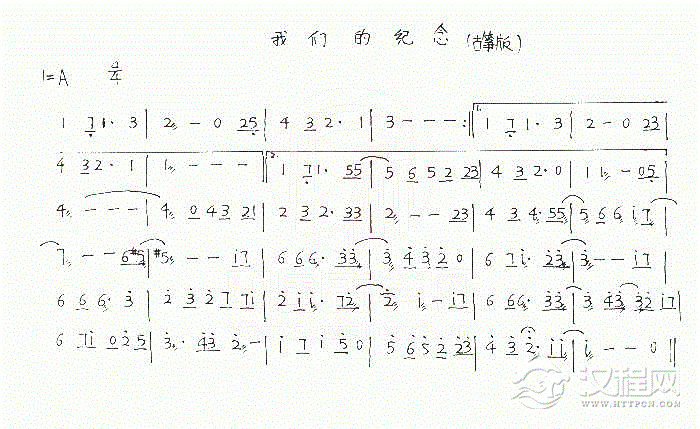 我们的纪念(古筝版)
1=A 4/4
1 7 1· 3 | 2 - 0 25 | 4 3 2· 1 | 3 - - - :‖ 1. 1 7 1· 3 | 2 - 0 23 |
4 32· 1 | 1 - - - ‖ 2. 1 7 1· 55 | 5 6 5 2 23 | 4 3 2· 0 | 1 1 - 05 |
4 - - - | 4 0 4 3 21 | 2 3 2· 33 | 2 - - 23 | 4 3 4· 55 | 5 6 6 i7 |
7 - - 6#5 | #5 - - i7 | 6 6 6· 33 | 3 4 3 2 0 | 6 7 i· 23 | 3 - - i7 |
6 6 6· 3 | 2 3 2 7 7i | 2 i i· 72 | 2 i - i7 | 6 66· 33 | 3 43 32 i7 |
6 7i 0 2 5 | 3· 43 2 - | i 7 i 5 0 | 5 6 5 2 23 | 4 3 2· ii | i - - 0 |
汉程网
WWW.HTTPCN.COM